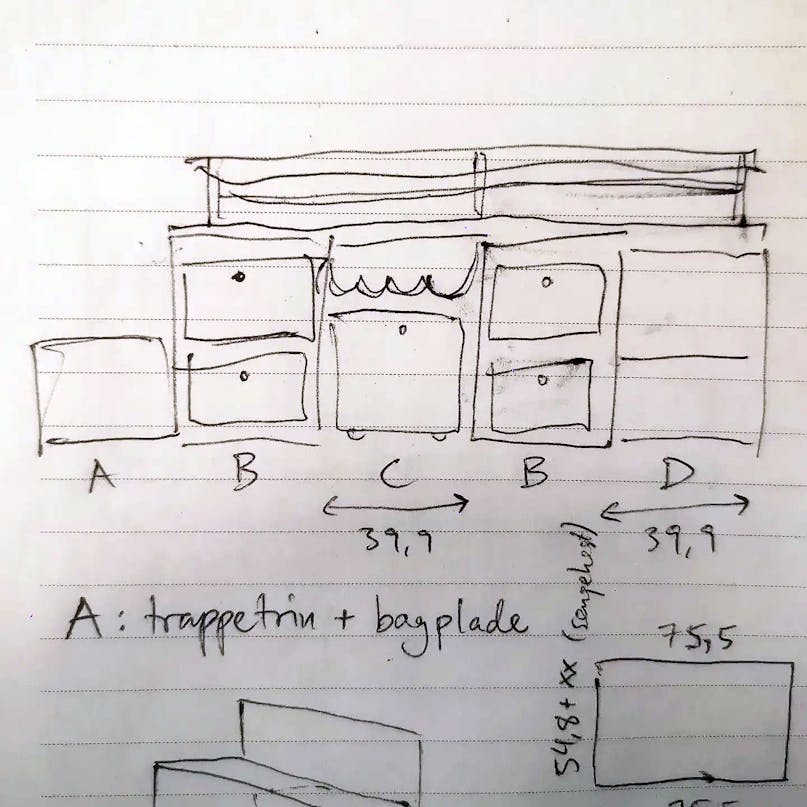 A B C B D
39,9 39,9
A : trappetrin + bagplade
75,5
54,8 + xx (sengehest)